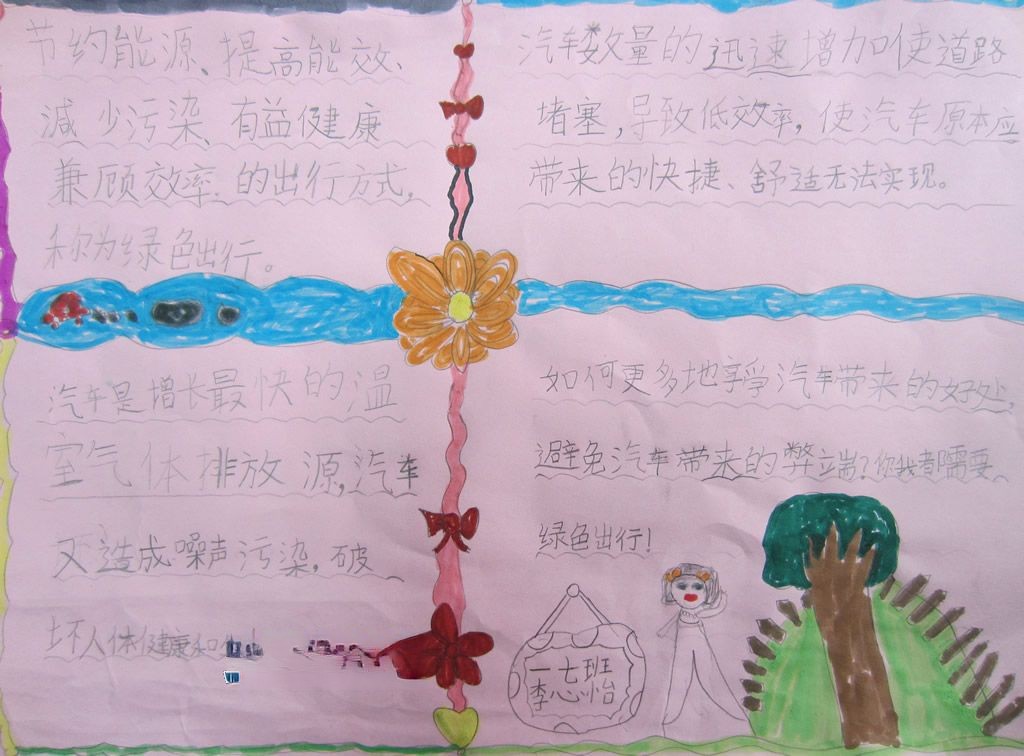 节约能源、提高能效、
减少污染、有益健康
兼顾效率、的出行方式，
称为绿色出行。
汽车数量的迅速增加使道路
堵塞，导致低效率，使汽车原本应
带来的快捷、舒适无法实现。
汽车是增长最快的温
室气体排放源，汽车
又造成噪声污染，破
坏人体健康和
如何更多地享受汽车带来的好处，
避免汽车带来的弊端？你我都需要
绿色出行！
一七班
李心怡